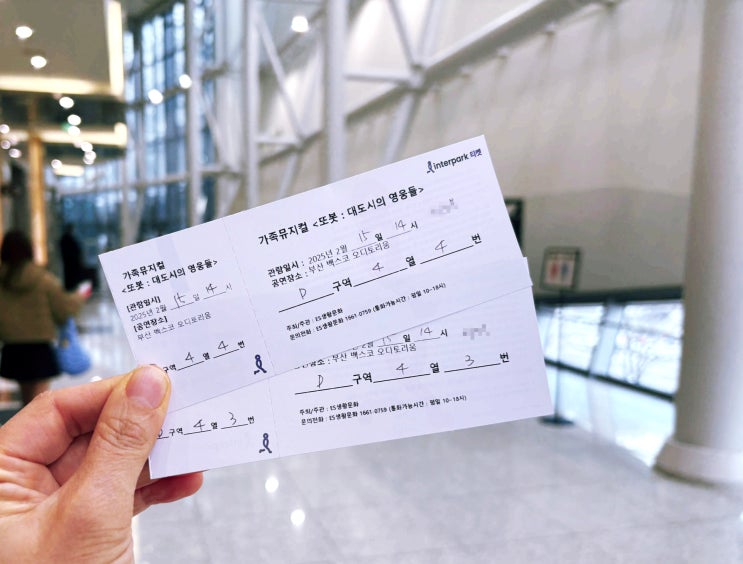 interpark 티켓
가족뮤지컬 <또봇 : 대도시의 영웅들>
관람일시 : 2025년 2월 15 일 14 시
공연장소 : 부산 벡스코 오디토리움
D 구역 4 열 4 번
주최/주관 : ES생활문화
문의전화 : ES생활문화 1661-0759 (통화가능시간 : 평일 10~18시)
가족뮤지컬
<또봇 : 대도시의 영웅들>
[관람일시]
2025년 2월 15 일 14 시
[공연장소]
부산 벡스코 오디토리움
구역 4 열 4 번
2월 15 일 14 시
장소 : 부산 벡스코 오디토리움
D 구역 4 열 3 번
주최/주관 : ES생활문화
문의전화 : ES생활문화 1661-0759 (통화가능시간 : 평일 10~18시)
D 구역 4 열 3 번